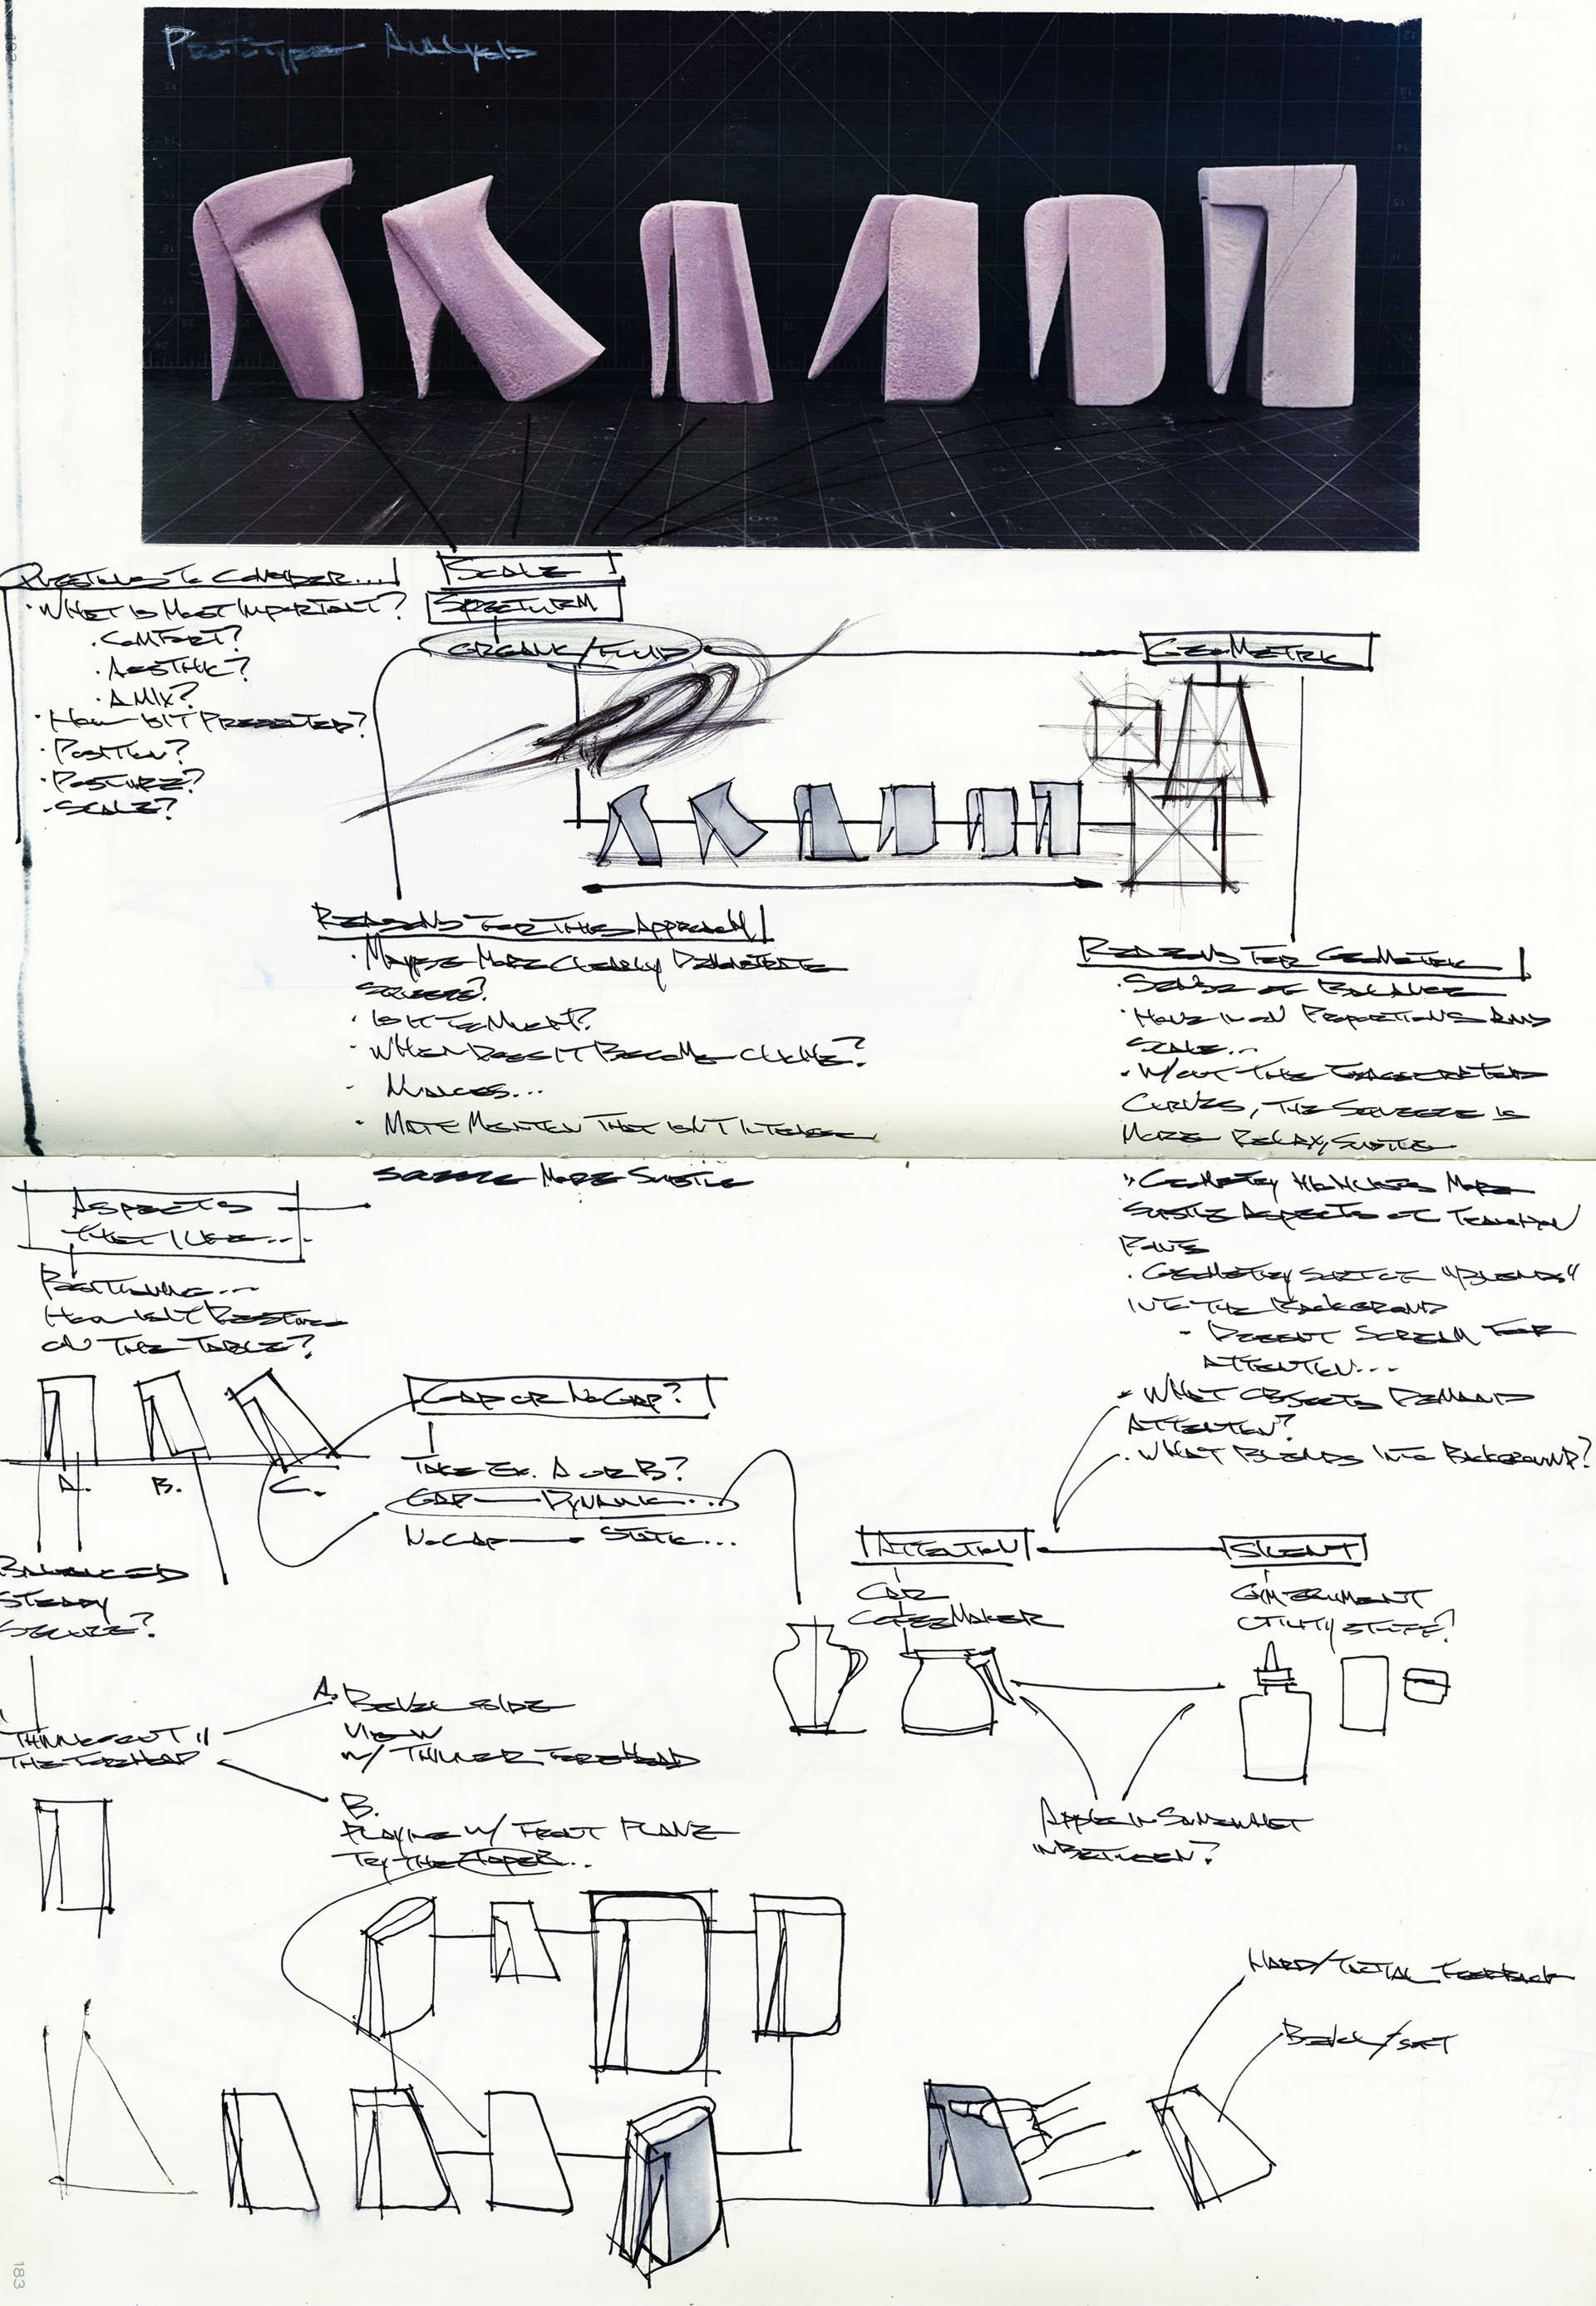 Prototype Analysis
Questions to Consider....
· What is most important?
· Comfort?
· Aesthic?
· A mix?
· How is it presented?
· Position?
· Posture?
· Scale?
Scale
Organic/Fluid
Geometric
Reasons for this Approach
· Maybe more clearly demonstrate
squeeze?
· Is it
· When does it become cliche?
· Nuances...
· that isn't intense
same more subtle
Reasons for Geometric
· Sense of Balance
· Hone in on proportions and
scale...
· W/out the exaggerated
curves, the squeeze is
more relax, subtle
· Geometry more
subtle aspects of
· Geometry surface "blends"
into the background
- Doesn't scream for
attention...
· What objects demand
attention?
· What blends into background?
Aspects
that I like...
Positioning...
How is it resting
on the table?
A. B. C.
Gap or No Gap?
Take Ex. A or B?
Gap — Dynamic...
No Gap — Static...
Balanced
Steady
Secure?
Attention
Car
Coffee Maker
Silent
Utility stuff?
"Thinning out"
the forehead
A. Bevel side
view
w/ thinner forehead
B.
Playing w/ front plane
Try the taper...
in somewhat
in between?
Hard/Tactial Feedback
Bevel/soft
183